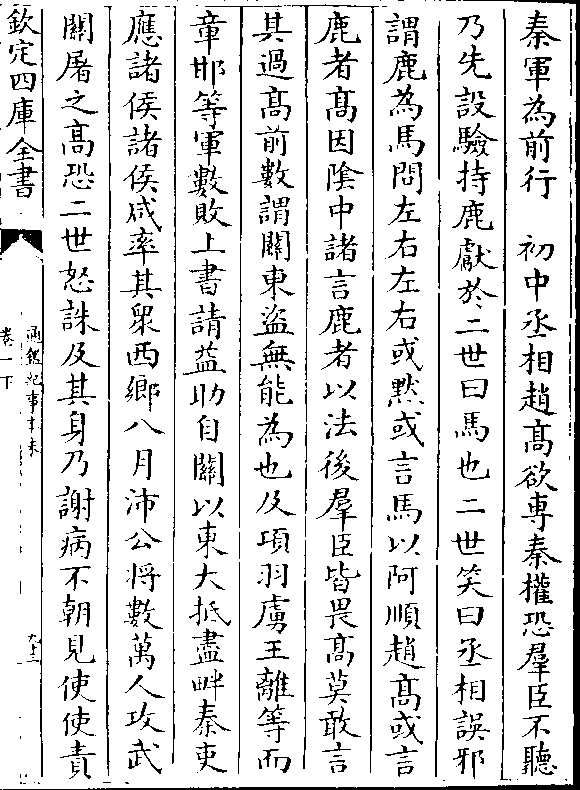 秦軍為前行　初中丞相趙髙欲專秦權恐羣臣不聽
乃先設驗持鹿獻於二世曰馬也二世笑曰丞相誤邪
謂鹿為馬問左右左右或黙或言馬以阿順趙髙或言
鹿者髙因陰中諸言鹿者以法後羣臣皆畏髙莫敢言
其過髙前數謂關東盜無能為也及項羽虜王離等而
章邯等軍數敗上書請益助自關以東大抵盡畔秦吏
應諸侯諸侯咸率其衆西鄉八月沛公将數萬人攻武
關屠之髙恐二世怒誅及其身乃謝病不朝見使使責
欽定四庫全書
通鑑紀事本末
卷一下